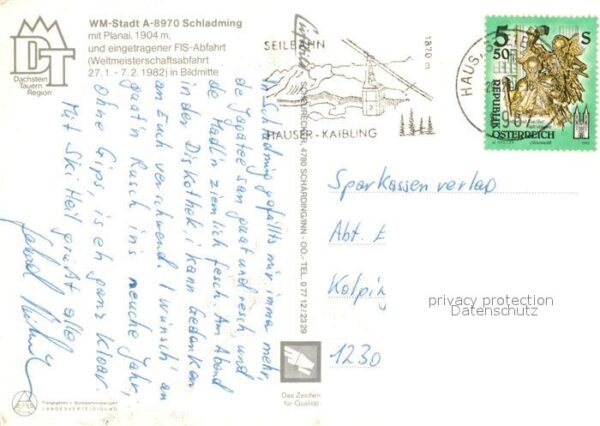 WM-Stadt A-8970 Schladming
mit Planai, 1904 m,
und eingetragener FIS-Abfahrt
(Weltmeisterschaftsabfahrt
27. 1. - 7. 2. 1982) in Bildmitte
Dachstein
Tauern
Region
SEILBAHN
1870 m
HAUSER-KAIBLING
HAUS,
5
50
S
REPUBLIK
ÖSTERREICH
In Schladming gefällts mir imma mehr,
de Jagatee san guat und resch und
de Madln ziemlich fesch. Am Abend
in der Diskothek, i kann Gedanken
an Euch verschwend. I wünsch' an
guat'n Rusch ins neuche Jahr,
ohne Gips, is eh ganz kloar.
Mit Ski Heil grüßt alle
4780 SCHÄRDING/INN - OÖ. - TEL. 0 77 12/23 29
Sparkassenverlag
Abt. E
1230
privacy protection
Datenschutz
Das Zeichen
für Qualität
LANDESVERTEIDIGUNG